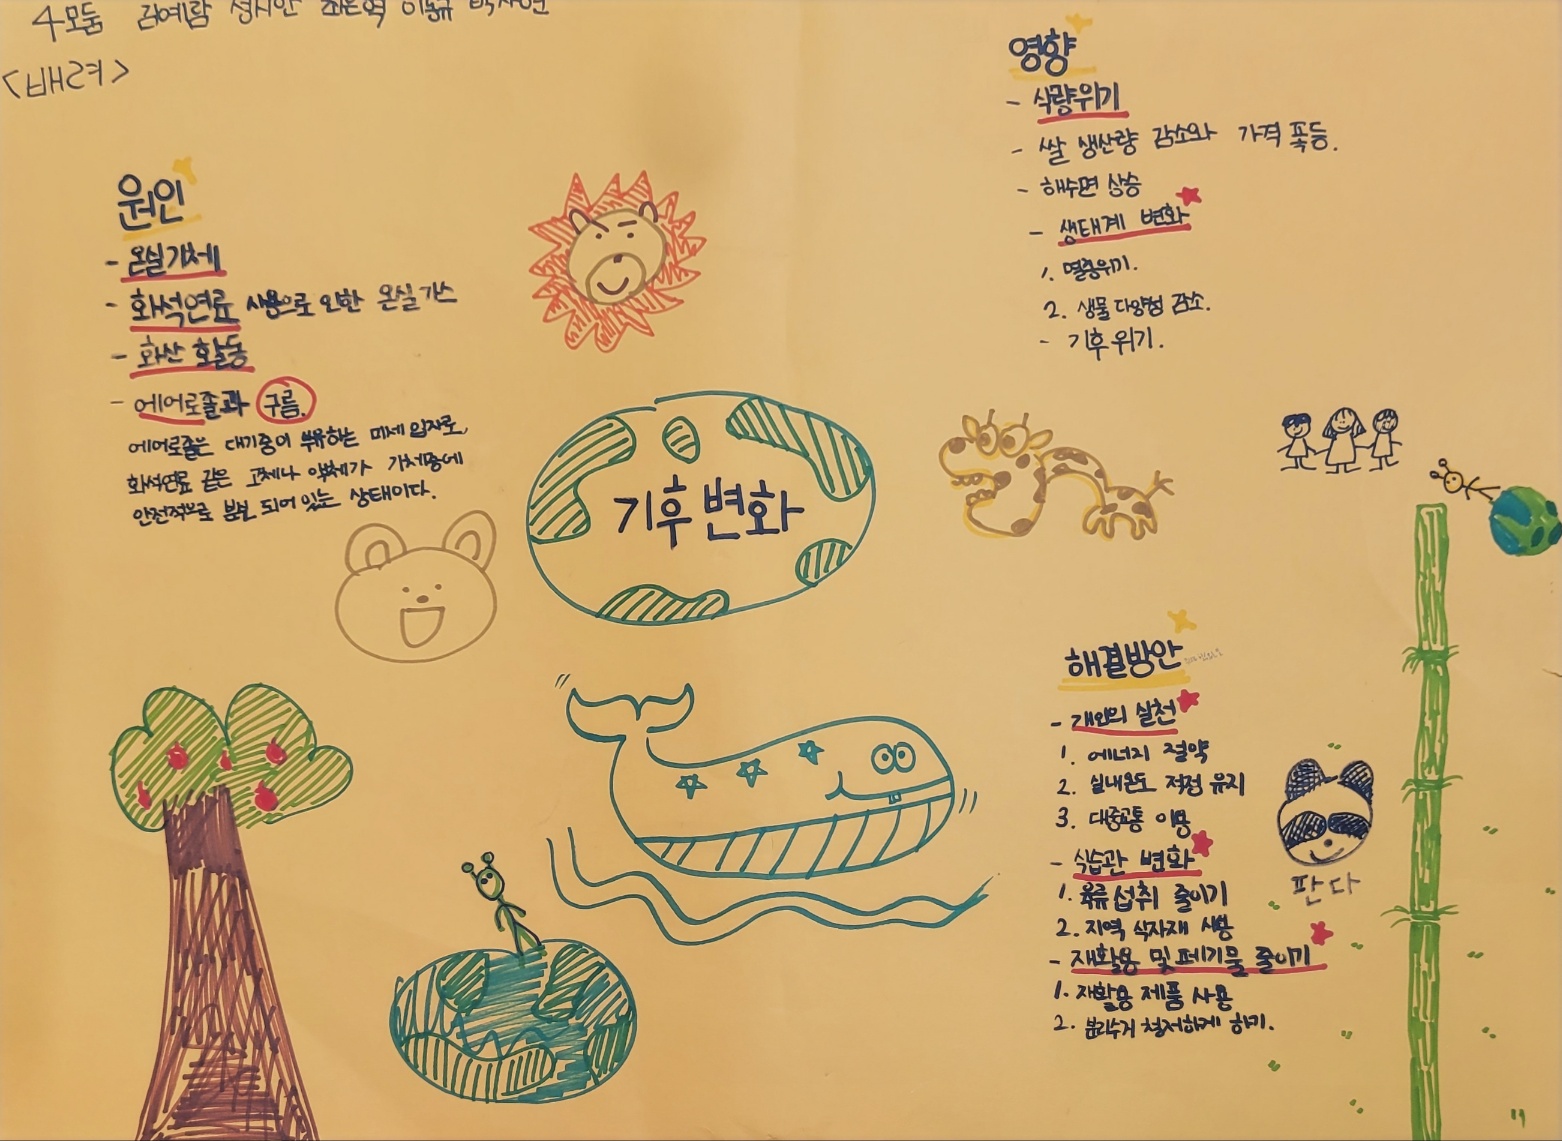 4모둠
<배려>
원인
- 온실기체
- 화석연료 사용으로 인한 온실가스
- 화산 활동
- 에어로졸과 구름.
에어로졸은 대기중이 부유하는 미세 입자로,
화석연료 같은 고체나 액체가 기체중에
안전적으로 분산 되어 있는 상태이다.
기후변화
영향
- 식량위기
- 쌀 생산량 감소와 가격 폭등.
- 해수면 상승
- 생태계 변화
1. 멸종위기.
2. 생물 다양성 감소.
- 기후 위기.
해결방안
- 개인의 실천
1. 에너지 절약
2. 실내온도 적정 유지
3. 대중교통 이용
- 식습관 변화
1. 육류 섭취 줄이기
2. 지역 식자재 사용
- 재활용 및 폐기물 줄이기
1. 재활용 제품 사용
2. 분리수거 철저하게 하기.
판다